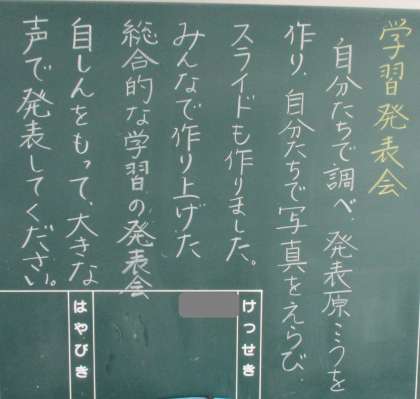 学習発表会
自分たちで調べ、発表原こうを
作り、自分たちで写真をえらび、
スライドも作りました。
みんなで作り上げた
総合的な学習の発表会
自しんをもって、大きな
声で発表してください。
けっせき
はやびき